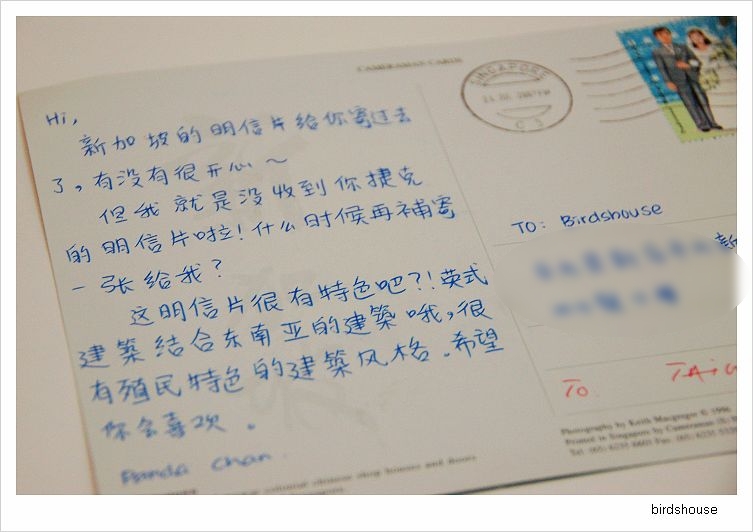 CAMERAMAN CARDS
SINGAPORE
Hi,
新加坡的明信片给你寄过去
了,有没有很开心~
但我就是没收到你捷克
的明信片啦!什么时候再補寄
一张给我?
这明信片很有特色吧?!英式
建築结合东南亚的建築哦,很
有殖民特色的建築风格.希望
你会喜欢。
Panda Chan.
TO: Birdshouse
新
To. TAIW
Photography by Keith Macgregor © 1996
Printed in Singapore by Cameraman
Tel: (65) 6235 6601 Fax: (65) 6235
colonial chinese shop houses and doors
birdshouse